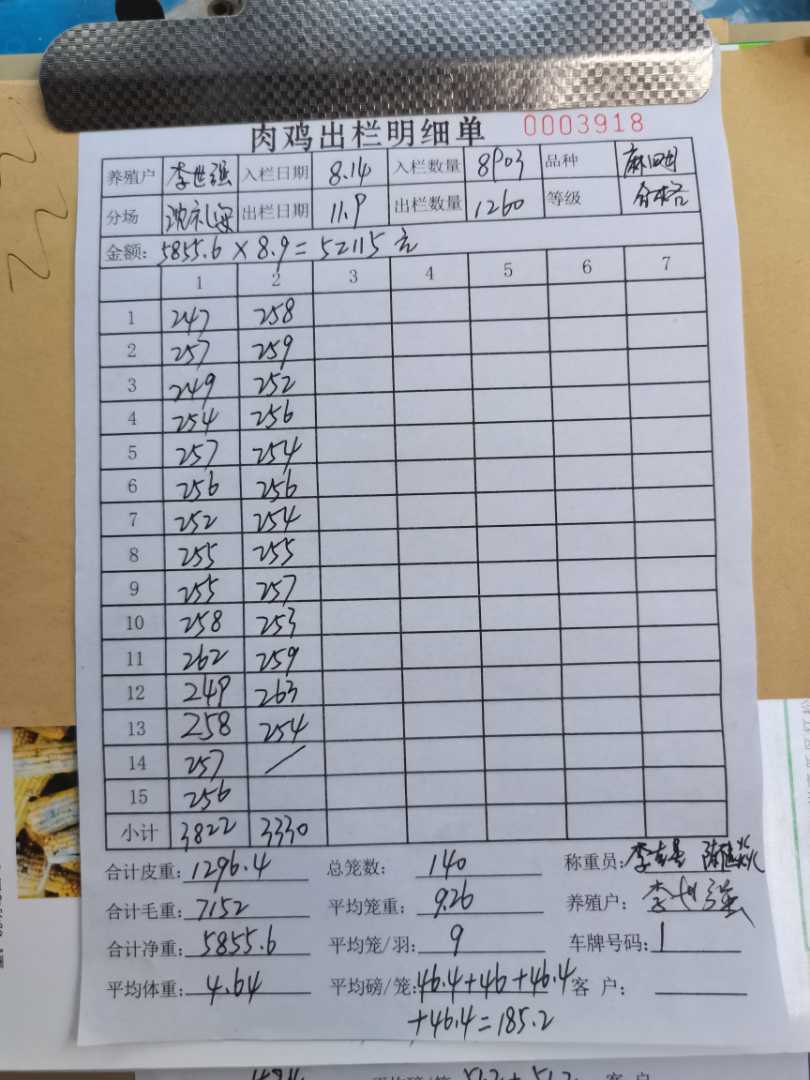 肉鸡出栏明细单 0003918
养殖户 李世强 入栏日期 8.14 入栏数量 8903 品种
分场 沈礼安 出栏日期 11.9 出栏数量 1260 等级 合格
金额: 5855.6 × 8.9 = 52115 元
1 2 3 4 5 6 7
1 247 258
2 257 259
3 249 252
4 254 256
5 257 254
6 256 256
7 252 254
8 255 255
9 255 257
10 258 253
11 262 259
12 249 263
13 258 254
14 257 /
15 256
小计 3822 3330
合计皮重: 1296.4 总笼数: 140 称重员:
合计毛重: 7152 平均笼重: 9.26 养殖户: 李世强
合计净重: 5855.6 平均笼/羽: 9 车牌号码: 1
平均体重: 4.64 平均磅/笼: 46.4+46+46.4 客 户:
+46.4=185.2